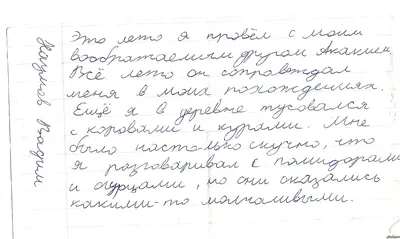 Наумов Вадим
Это лето я провёл с моим
воображаемым другом Акакием.
Всё лето он сопровждал
меня в моих похождениях.
Ещё я в деревне тусовался
с коровами и курами. Мне
было настолько скучно, что
я разговаривал с помидорами
и огурцами, но они оказались
какими-то молчаливыми.